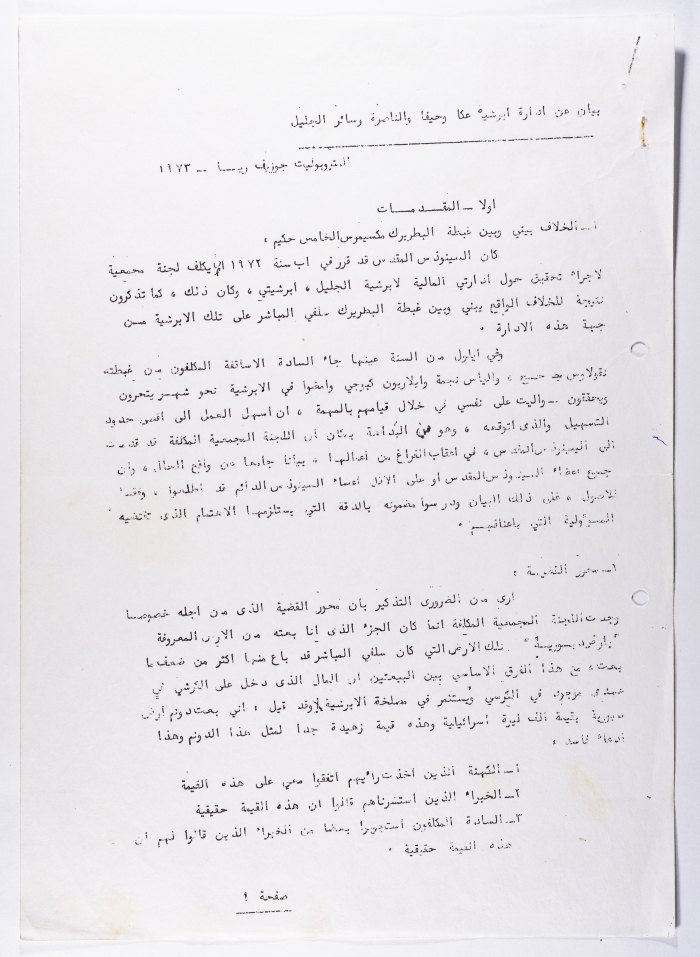 بيان عن ادارة ابرشية عكا وحيفا والناصرة وسائر الجليل
المتروبوليت جوزيف ريـــا -- ١٩٧٣
اولا - المقدمـــات
أ- الخلاف بيني وبين غبطة البطريرك مكسيموس الخامس حكيم ؛
كان السينوذس المقدس قد قرر في اب سنة ١٩٧٢ يكلف لجنة مجمعية
لاجراء تحقيق حول ادارتي المالية لابرشية الجليل ، ابرشيتي ، وكان ذلك ، كما تذكرون
نتيجة للخلاف الواقع بيني وبين غبطة البطريرك سلفي المباشر على تلك الابرشية مـــن
جهة هذه الادارة .
وفي أيلول من السنة عينها جاء السادة الاساقفة المكلفون من غبطته
نقولاوس ، والياس نجمة وايلاريون كبوجي وامضوا في الابرشية نحو شهـــر يتحرون
ويحققون - واليت على نفسي في خلال قيامهم بالمهمة ، ان اسهل العمل الى اقصى حدود
التسهيل والذى اتوقعه ، وهو من البداهة بمكان ان اللجنة المجمعية المكلفة قد قدمت
الى السينوذس المقدس ، في اعقاب الفراغ من اعمالهــا ، بيانا جامعا عن واقع الحال ، وان
جميع اعضاء السينوذس المقدس او على الاقل اعضاء السينوذس الدائم قد اطلعـوا ، وفقــا
للاصول ، على ذلك البيان ودرسوا مضمونه بالدقة التي يستلزمهــا الاهتمام الذى تقتضيه
المسؤولية التي باعناقهـــم .
١- محور القضيــة ؛
ارى من الضرورى التذكير بان محور القضية الذى من اجله خصوصـا
وجدت اللجنة المجمعية المكلفة انما كان الجزء الذى انا بعته من الارض المعروفة
تلك الارض التي كان سلفي المباشر قد باع منهـا اكثر من ضعف ما
بعت ، مع هذا الفرق الاساسي بين البيعتين ان المال الذى دخل على الكرسي في
عهدى موجود في الكرسي ويستثمر في مصلحة الابرشية وقد قيل ؛ اني بعت دونم ارض
بقيمة الف ليرة اسرائيلية وهذه قيمة زهيدة جدا لمثل هذا الدونم وهذا
ادعاء فاسد ؛
١- الكهنة الذين اخذت رايهم اتفقوا معي على هذه القيمة
٢- الخبراء الذين استشرناهم قالوا ان هذه القيمة حقيقية
٣- السادة المكلفون استجوبوا بعضا من الخبراء الذين قالوا لهم ان
هذه القيمة حقيقية .
صفحة ١